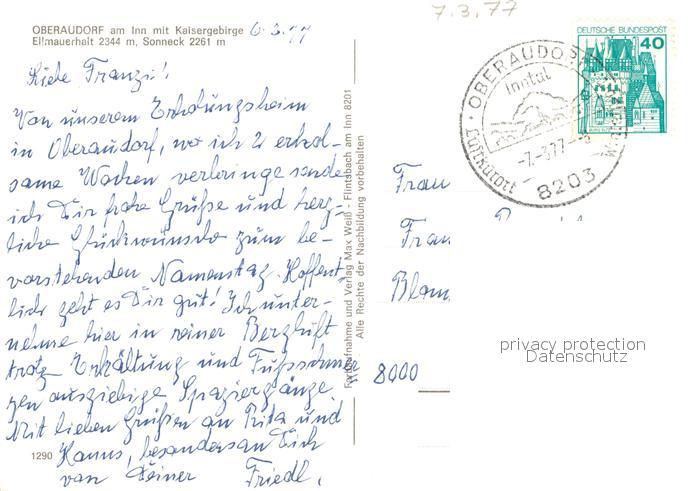 7.3.77
OBERAUDORF am Inn mit Kaisergebirge
Ellmauerhalt 2344 m, Sonneck 2261 m
6.3.77
Liebe Franzi!
Von unserem Erholungsheim
in Oberaudorf, wo ich 2 erhol-
same Wochen verbringe sende
ich Dir frohe Grüße und herz-
liche Glückwünsche zum be-
vorstehenden Namenstag. Hoffent-
lich geht es Dir gut! Ich unter-
nehme hier in reiner Bergluft
trotz Erkältung und Fußschmer-
zen ausgiebige Spaziergänge.
Mit lieben Grüßen an Rita und
Hanns, besonders an Dich
von Deiner Friedl.
1290
Verlag Max Weiß - Flintsbach am Inn 8201
Alle Rechte der Nachbildung vorbehalten
DEUTSCHE BUNDESPOST
40
OBERAUDORF
Inntal
Luftkurort
-7.-3.77-
8203
Frau
Fran
Blum
8000
privacy protection
Datenschutz